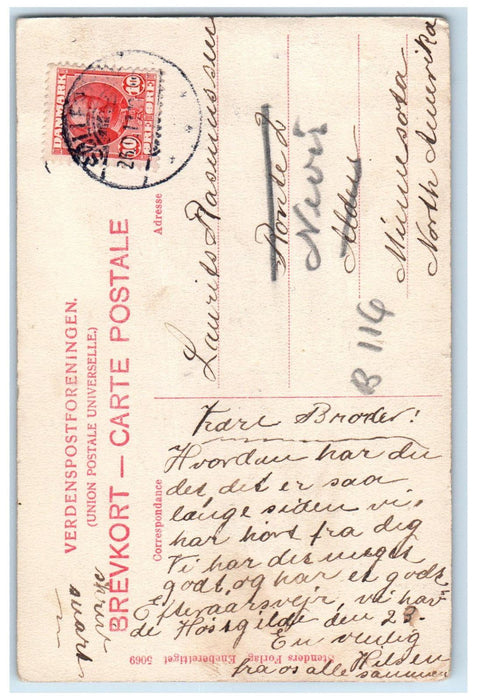 DANMARK
10 10
ØRE ØRE
VERDENSPOSTFORENINGEN.
(UNION POSTALE UNIVERSELLE.)
BREVKORT — CARTE POSTALE
Adresse
Laurits Rasmussen
Route 2
Nevis
Alden
Minnesota
North Amerika
B 116
Correspondance
Kære Broder!
Hvordan har du
det, det er saa
længe siden vi
har hørt fra dig
Vi har det meget
godt, og har et godt
Efteraarsvejr, vi hav-
de Høstgilde den 23.
En venlig
Hilsen
fra os alle sammen
skriv
snart
Stenders Forlag Eneberettiget 5069